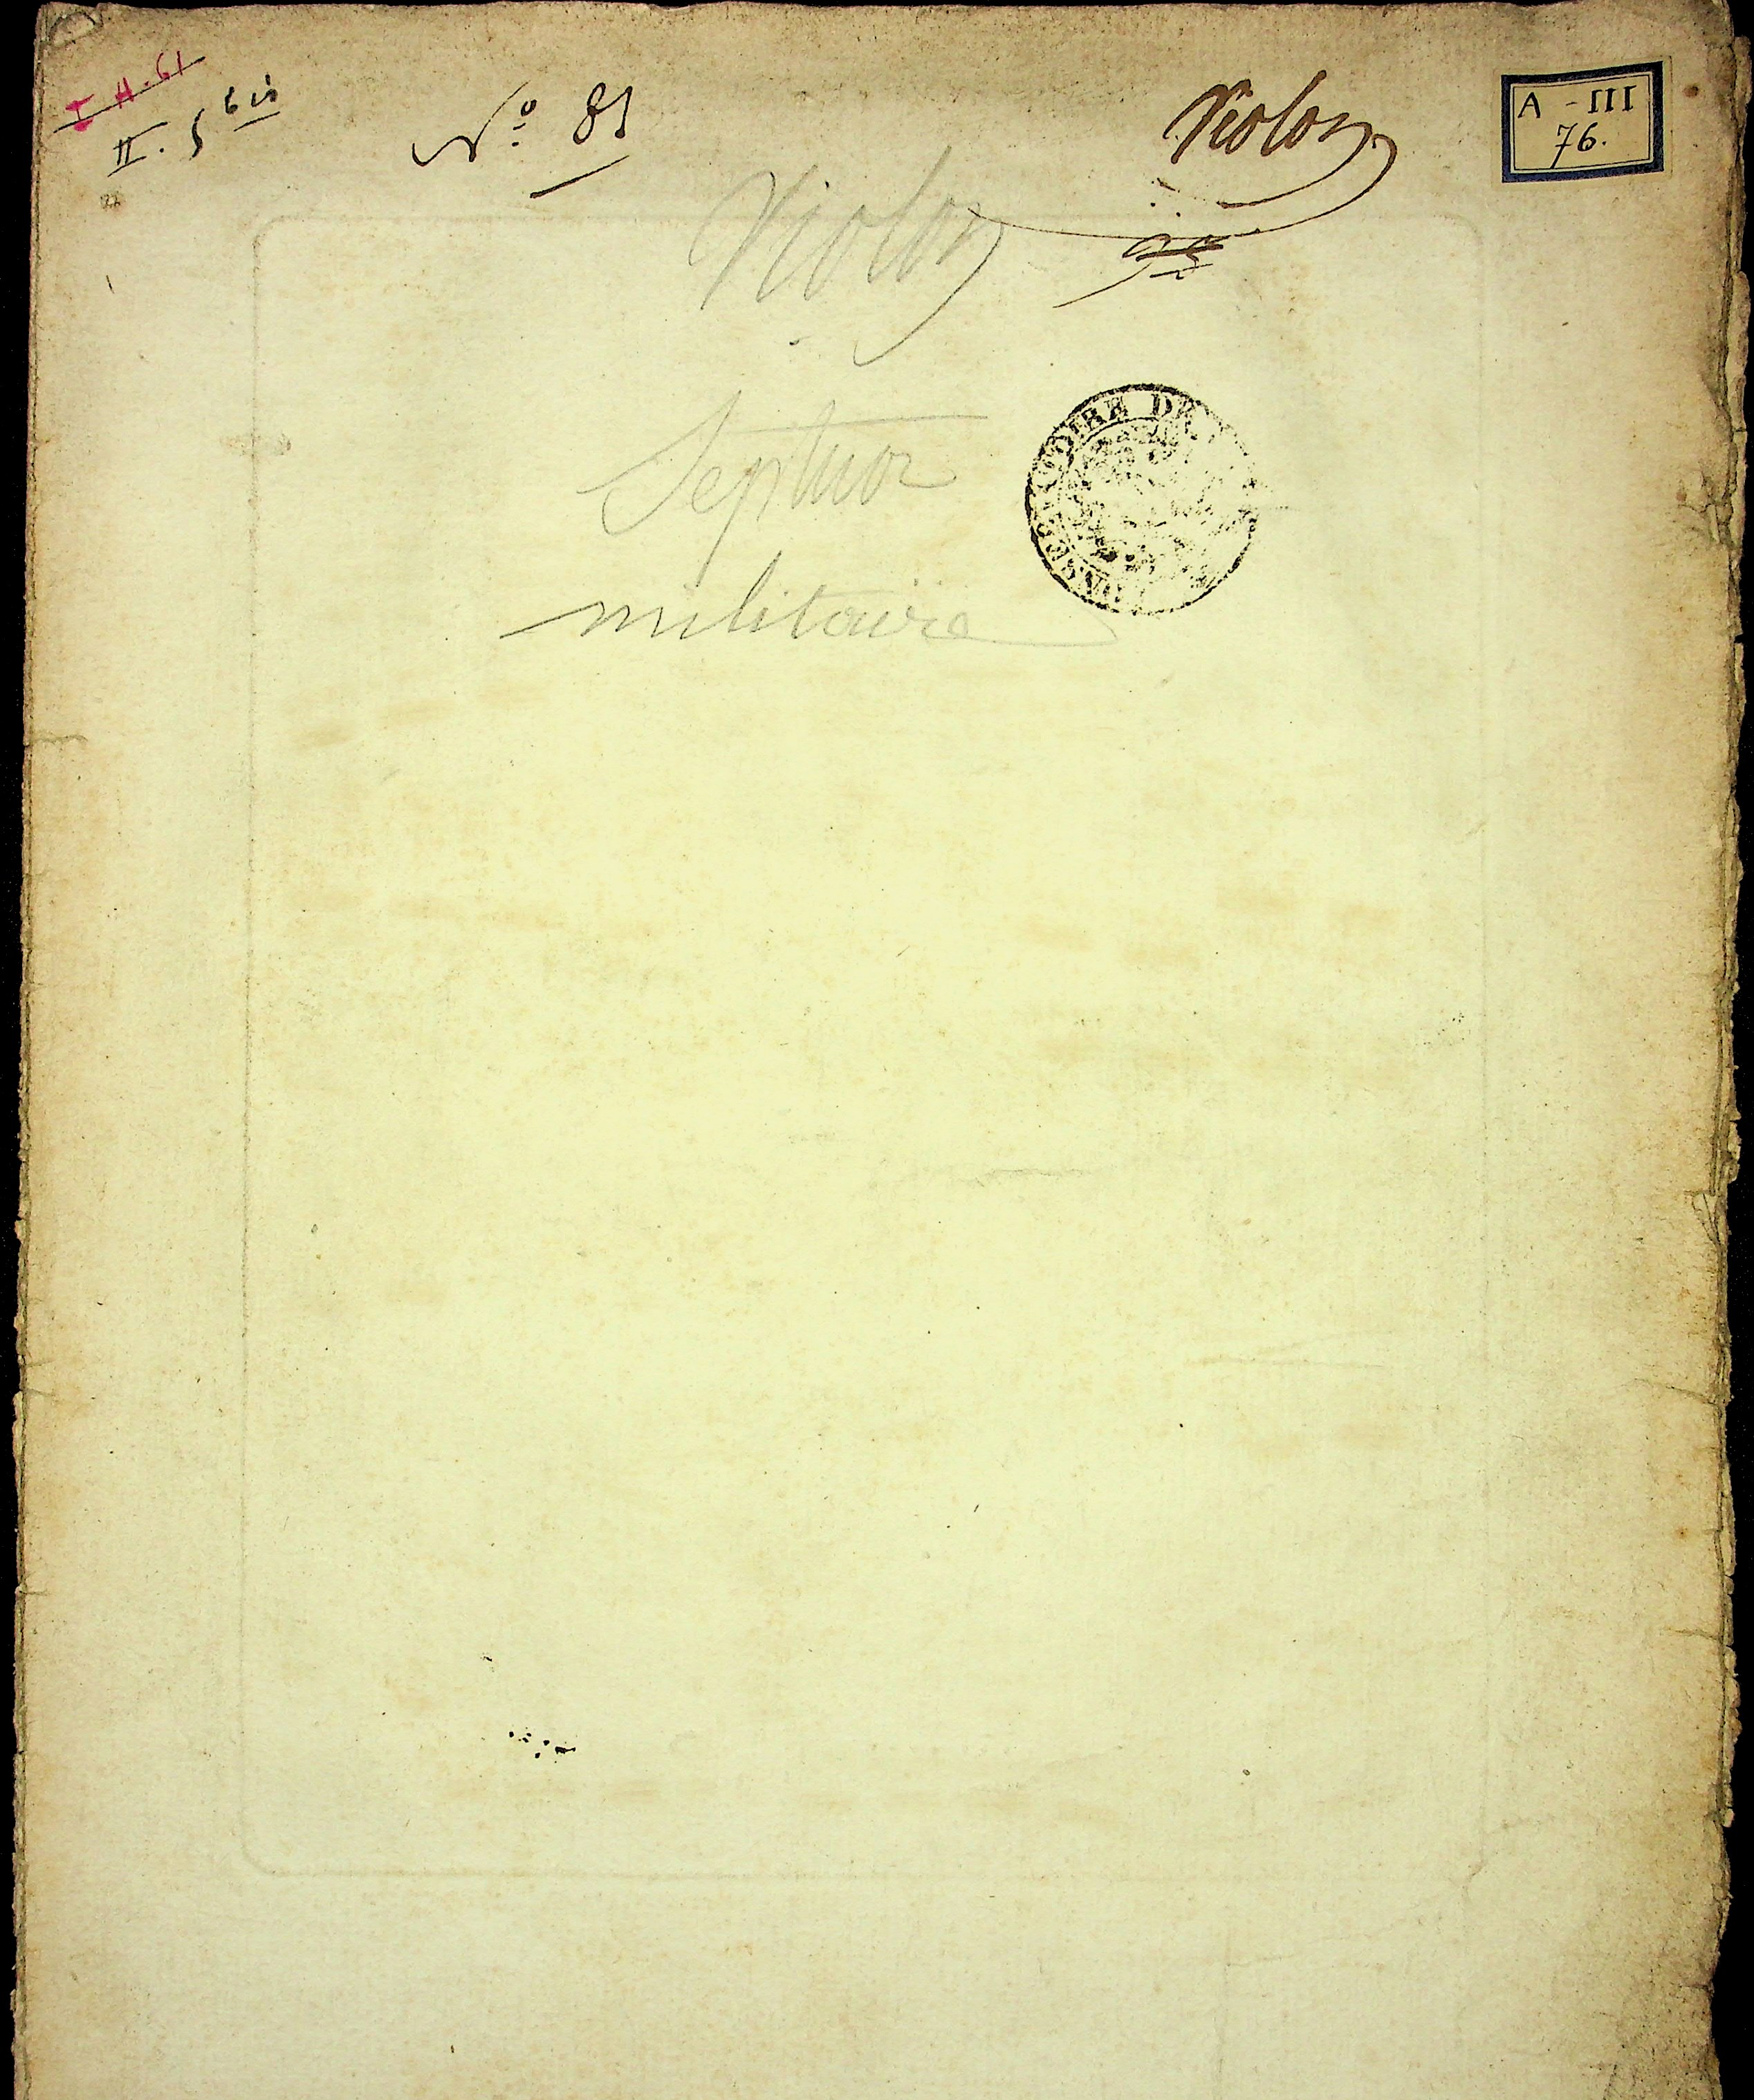 I H. 61
II. 5 bis
Nº 81
Violon
A - III
76.
Violon
Septuor
militaire
CONSERVATOIRE DE